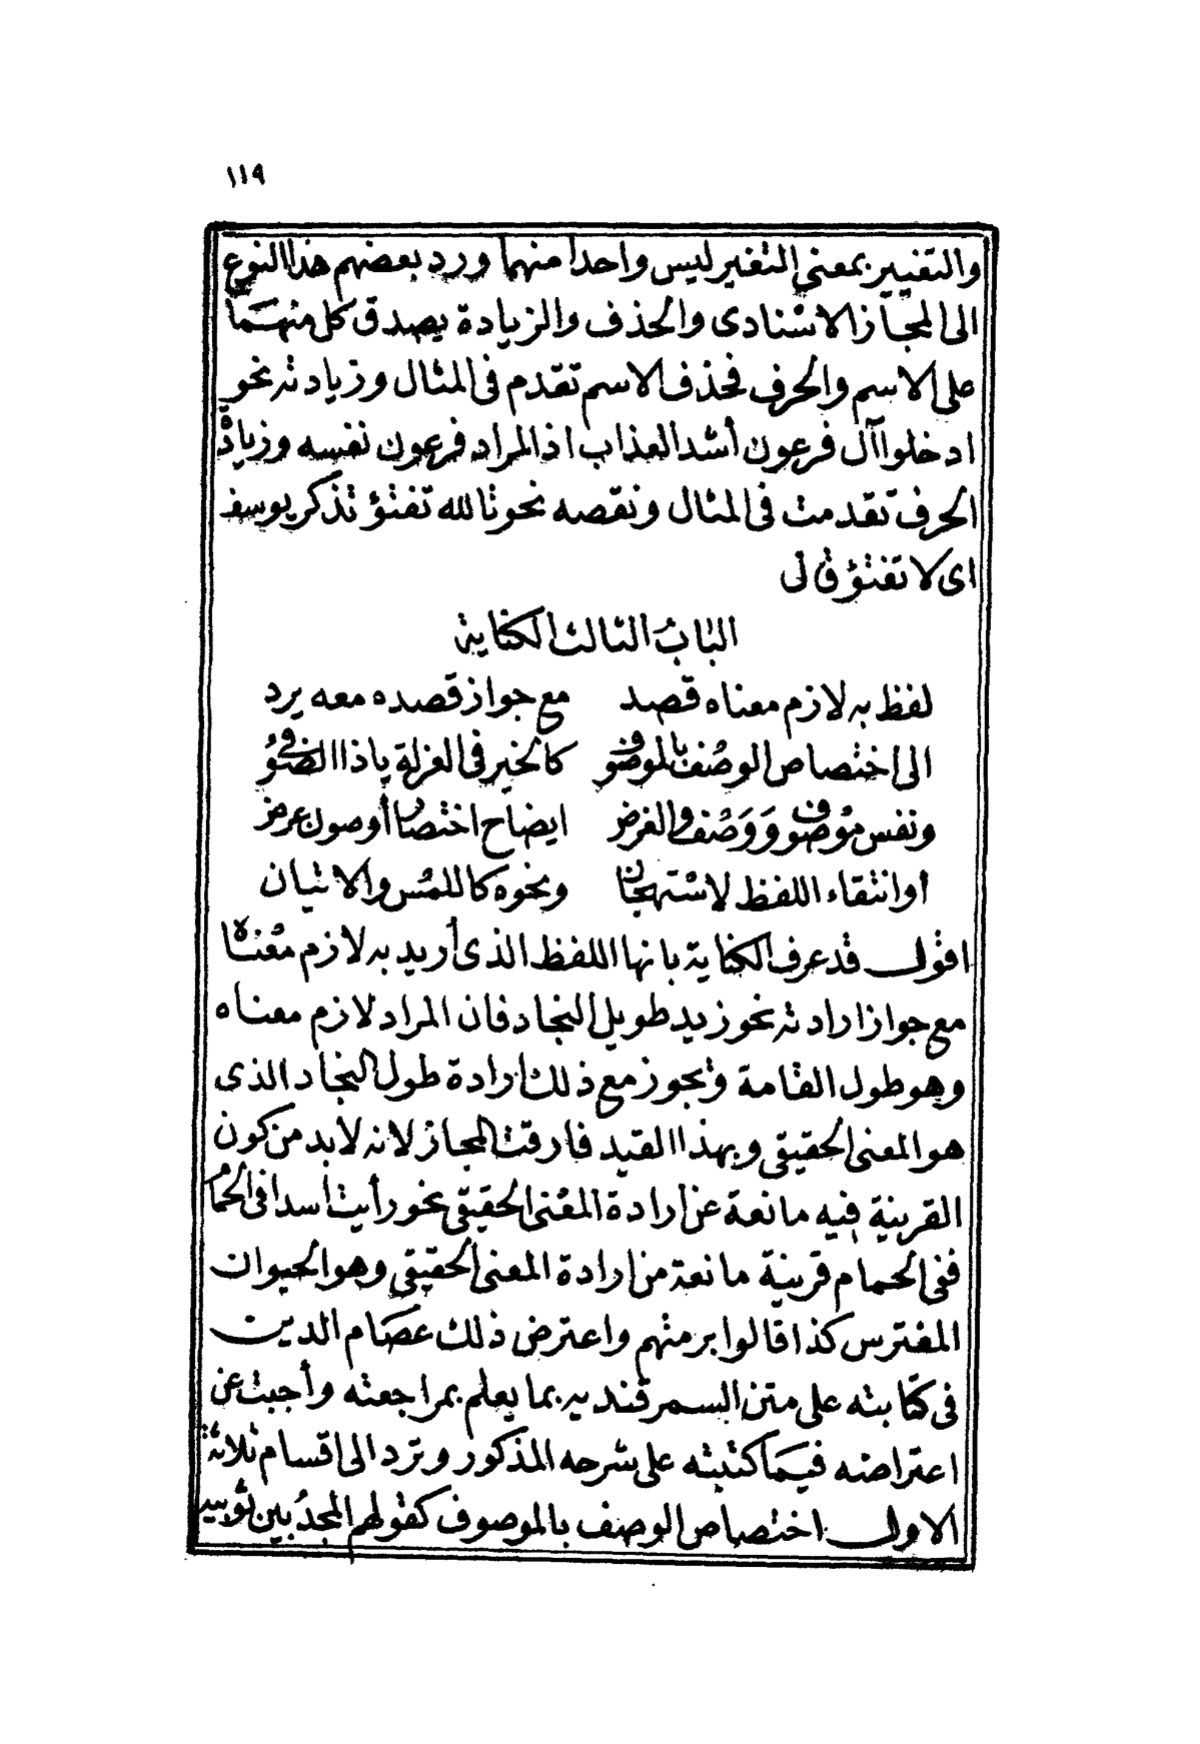 ١١٩
والتغيير بمعنى التغير ليس واحدا منهما ورد بعضهم هذا النوع
الى المجاز الاسنادى والحذف والزيادة يصدق كل منهما
على الاسم والحرف فحذف الاسم تقدم فى المثال وزيادته نحو
ادخلوا آل فرعون أشد العذاب اذ المراد فرعون نفسه وزيادة
الحرف تقدمت فى المثال ونقصه نحو تالله تفتؤ تذكر يوسف
اى لا تفتؤ قال
الباب الثالث الكناية
لفظ به لازم معناه قصد مع جواز قصده معه يرد
الى اختصاص الوصف بالموصوف كالخير فى العزلة ياذا الصوفى
ونفس موصوف ووصف والغرض ايضاح اختصار أو صون عرض
أو انتقاء اللفظ لاستهجان ونحوه كاللمس والاتيان
اقول قد عرف الكناية بانها اللفظ الذى أريد به لازم معناه
مع جواز ارادته نحو زيد طويل النجاد فان المراد لازم معناه
وهو طول القامة ويجوز مع ذلك ارادة طول النجاد الذى
هو المعنى الحقيقى وبهذا القيد فارقت المجاز لانه لابد من كون
القرينة فيه مانعة عن ارادة المعنى الحقيقى نحو رأيت أسدا فى الحمام
ففى الحمام قرينة مانعة من ارادة المعنى الحقيقى وهو الحيوان
المفترس كذا قالوا برمتهم واعترض ذلك عصام الدين
فى كتابته على متن السمرقنديه بما يعلم بمراجعته وأجبت عن
اعتراضه فيما كتبته على شرحه المذكور وترد الى اقسام ثلاثة
الاول اختصاص الوصف بالموصوف كقولهم المجد بين ثوبيه